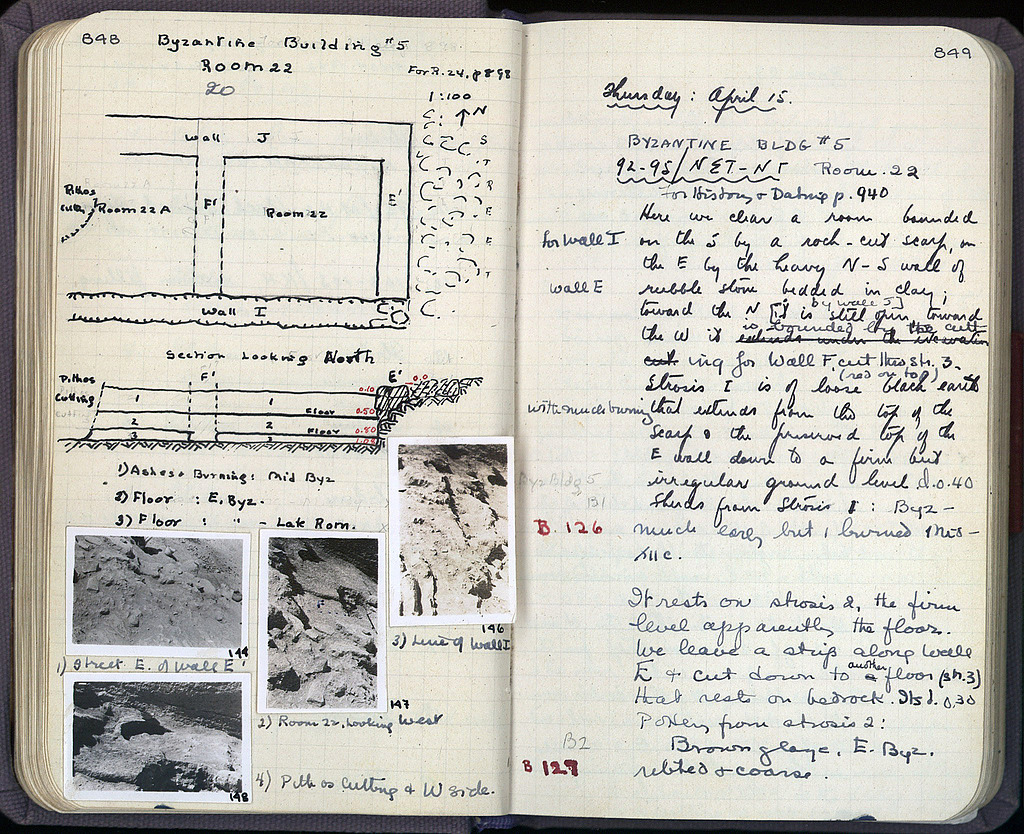 848
Byzantine Building #5
Room 22
20
For R. 24, p 898
1:100
N
STREET
Wall J
Pithos
Cutting
Room 22 A
F'
Room 22
E'
Wall I
Section Looking North
Pithos
Cutting
F'
E'
0.0
0.10
1
1
Floor
0.50
2
2
Floor
0.80
3
3
1) Ashes + Burning: Mid Byz
2) Floor : E. Byz.
3) Floor : " - Late Rom.
144
1) Street E. of Wall E'
147
2) Room 22, Looking West
146
3) Line of Wall I
148
4) Pithos Cutting & W side.
849
Thursday: April 15.
BYZANTINE BLDG #5
92-95/NET-NT Room 22
For History & Dating p. 940
Here we clear a room bounded
for Wall I on the S by a rock-cut scarp, on
the E by the heavy N-S wall of
wall E rubble stone bedded in clay;
toward the N [by wall J] it is still open toward
the W it is bounded by the cutt
extends under the
ing for Wall F, cut thru str. 3.
(red on top)
Strosis I is of loose black earth
with much burning that extends from the top of the
scarp & the preserved top of the
E wall down to a firm but
irregular ground level d. 0.40
Byz Bldg 5
B1
Sherds from Strosis 1: Byz -
B. 126 much early but 1 burned
III C.
It rests on strosis 2, the firm
level apparently the floor.
We leave a strip along Wall
E & cut down to another floor (str. 3)
that rests on bedrock. Its d. 0.30
Pottery from strosis 2:
B2
Brown glaze, E. Byz.
B 127 ribbed & coarse.